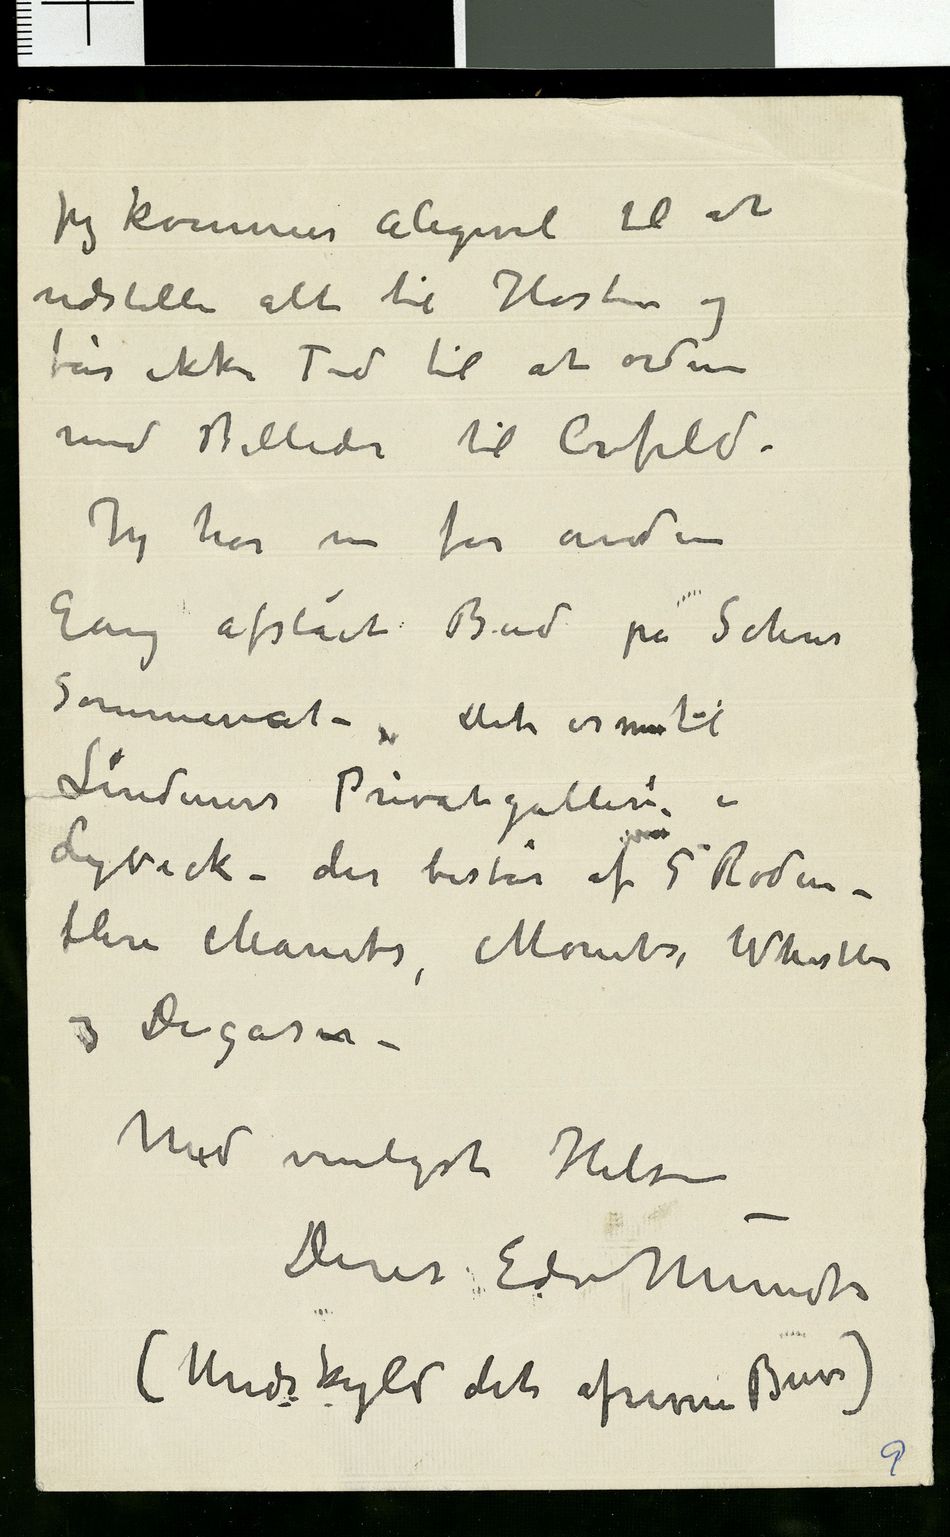 Jeg kommer aligevel til at
udstille alt til Høsten og
får ikke Tid til at ordne
med Billeder til Crefeld –
Jeg har nu for anden
Gang afslået Bud på
Sommernat – Det er nu til
Lindeners Privatgalleri i
Lybeck – der består af 5 Rodin –
flere Manets, Monets, Whistler
og Degaser –
Med venligst Hilsen
Deres Edv Munch
(Undskyld det afrevne Brev)
9